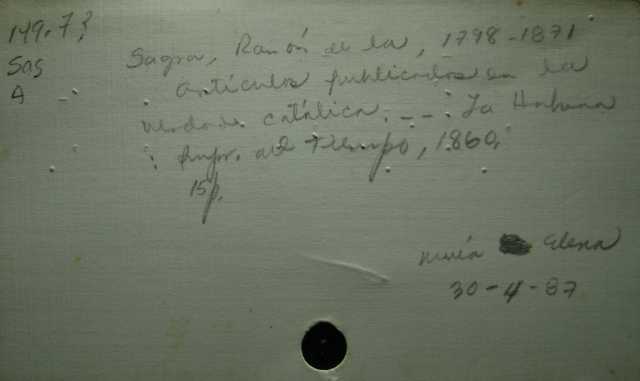 149.73
Sas
A
Sagra, Ramón de la, 1798-1871
artículos publicados en la
verdade católica. -- . La Habana
: Impr. del Tiempo, 1860.
15p.
María Elena
30-4-87